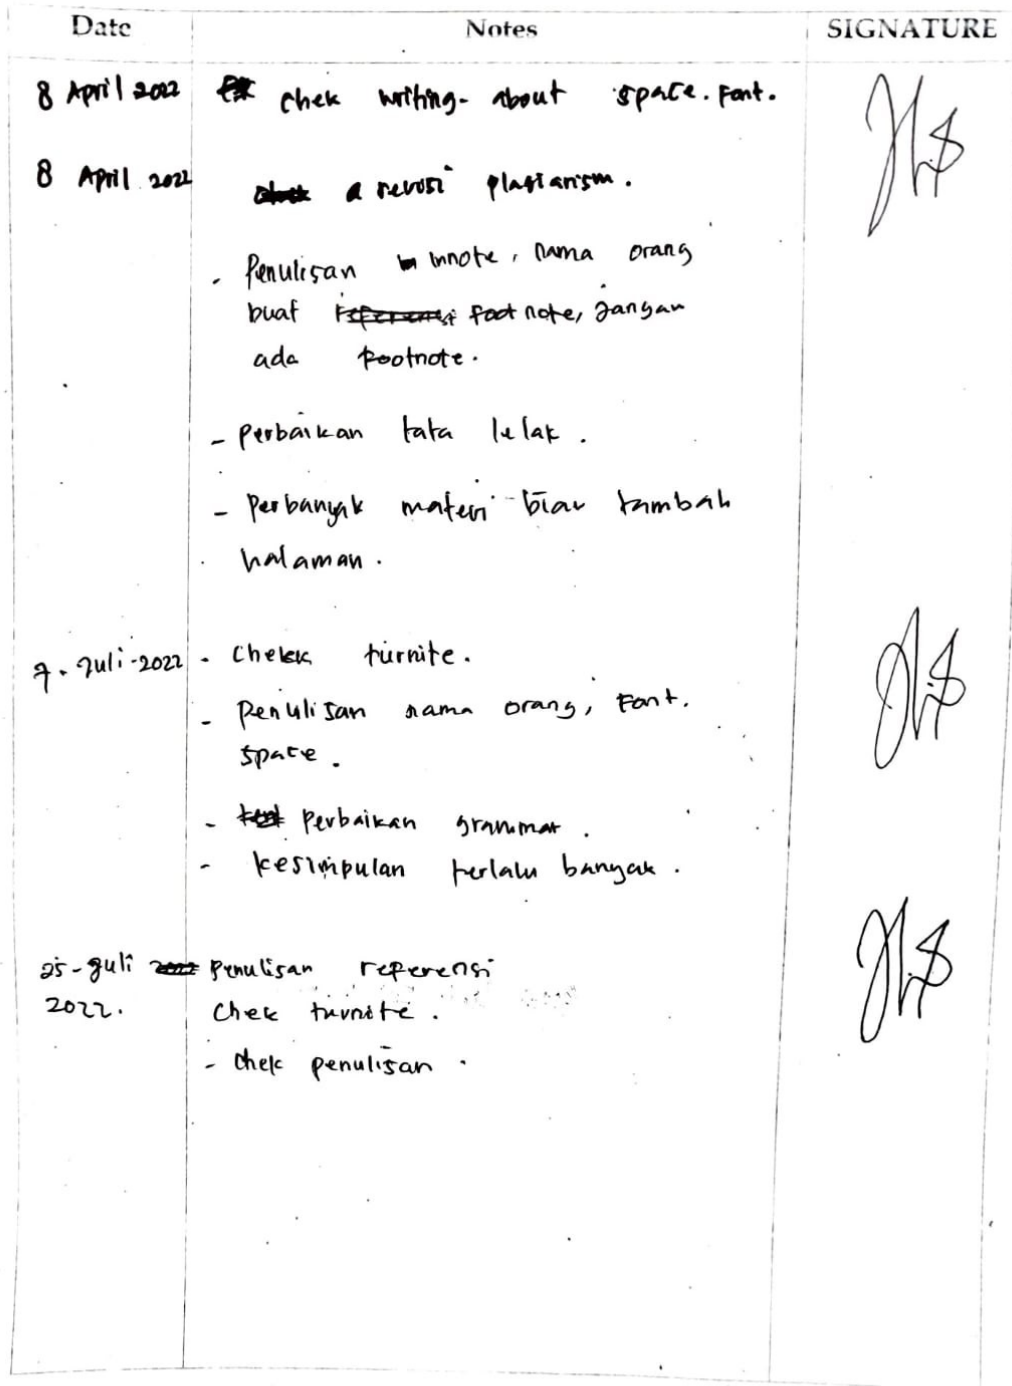 Date Notes SIGNATURE
8 April 2022 chek writing - about space. Font.
8 April 2022 a revisi plagiarism.
- Penulisan innote, nama orang
buat footnote, jangan
ada footnote.
- perbaikan tata letak.
- Perbanyak materi biar tambah
halaman.
7. Juli-2022 - Chek turnite.
- penulisan nama orang, Font.
space.
- perbaikan grammar.
- kesimpulan terlalu banyak.
25-Juli Penulisan referensi
2022. Chek turnite.
- chek penulisan.